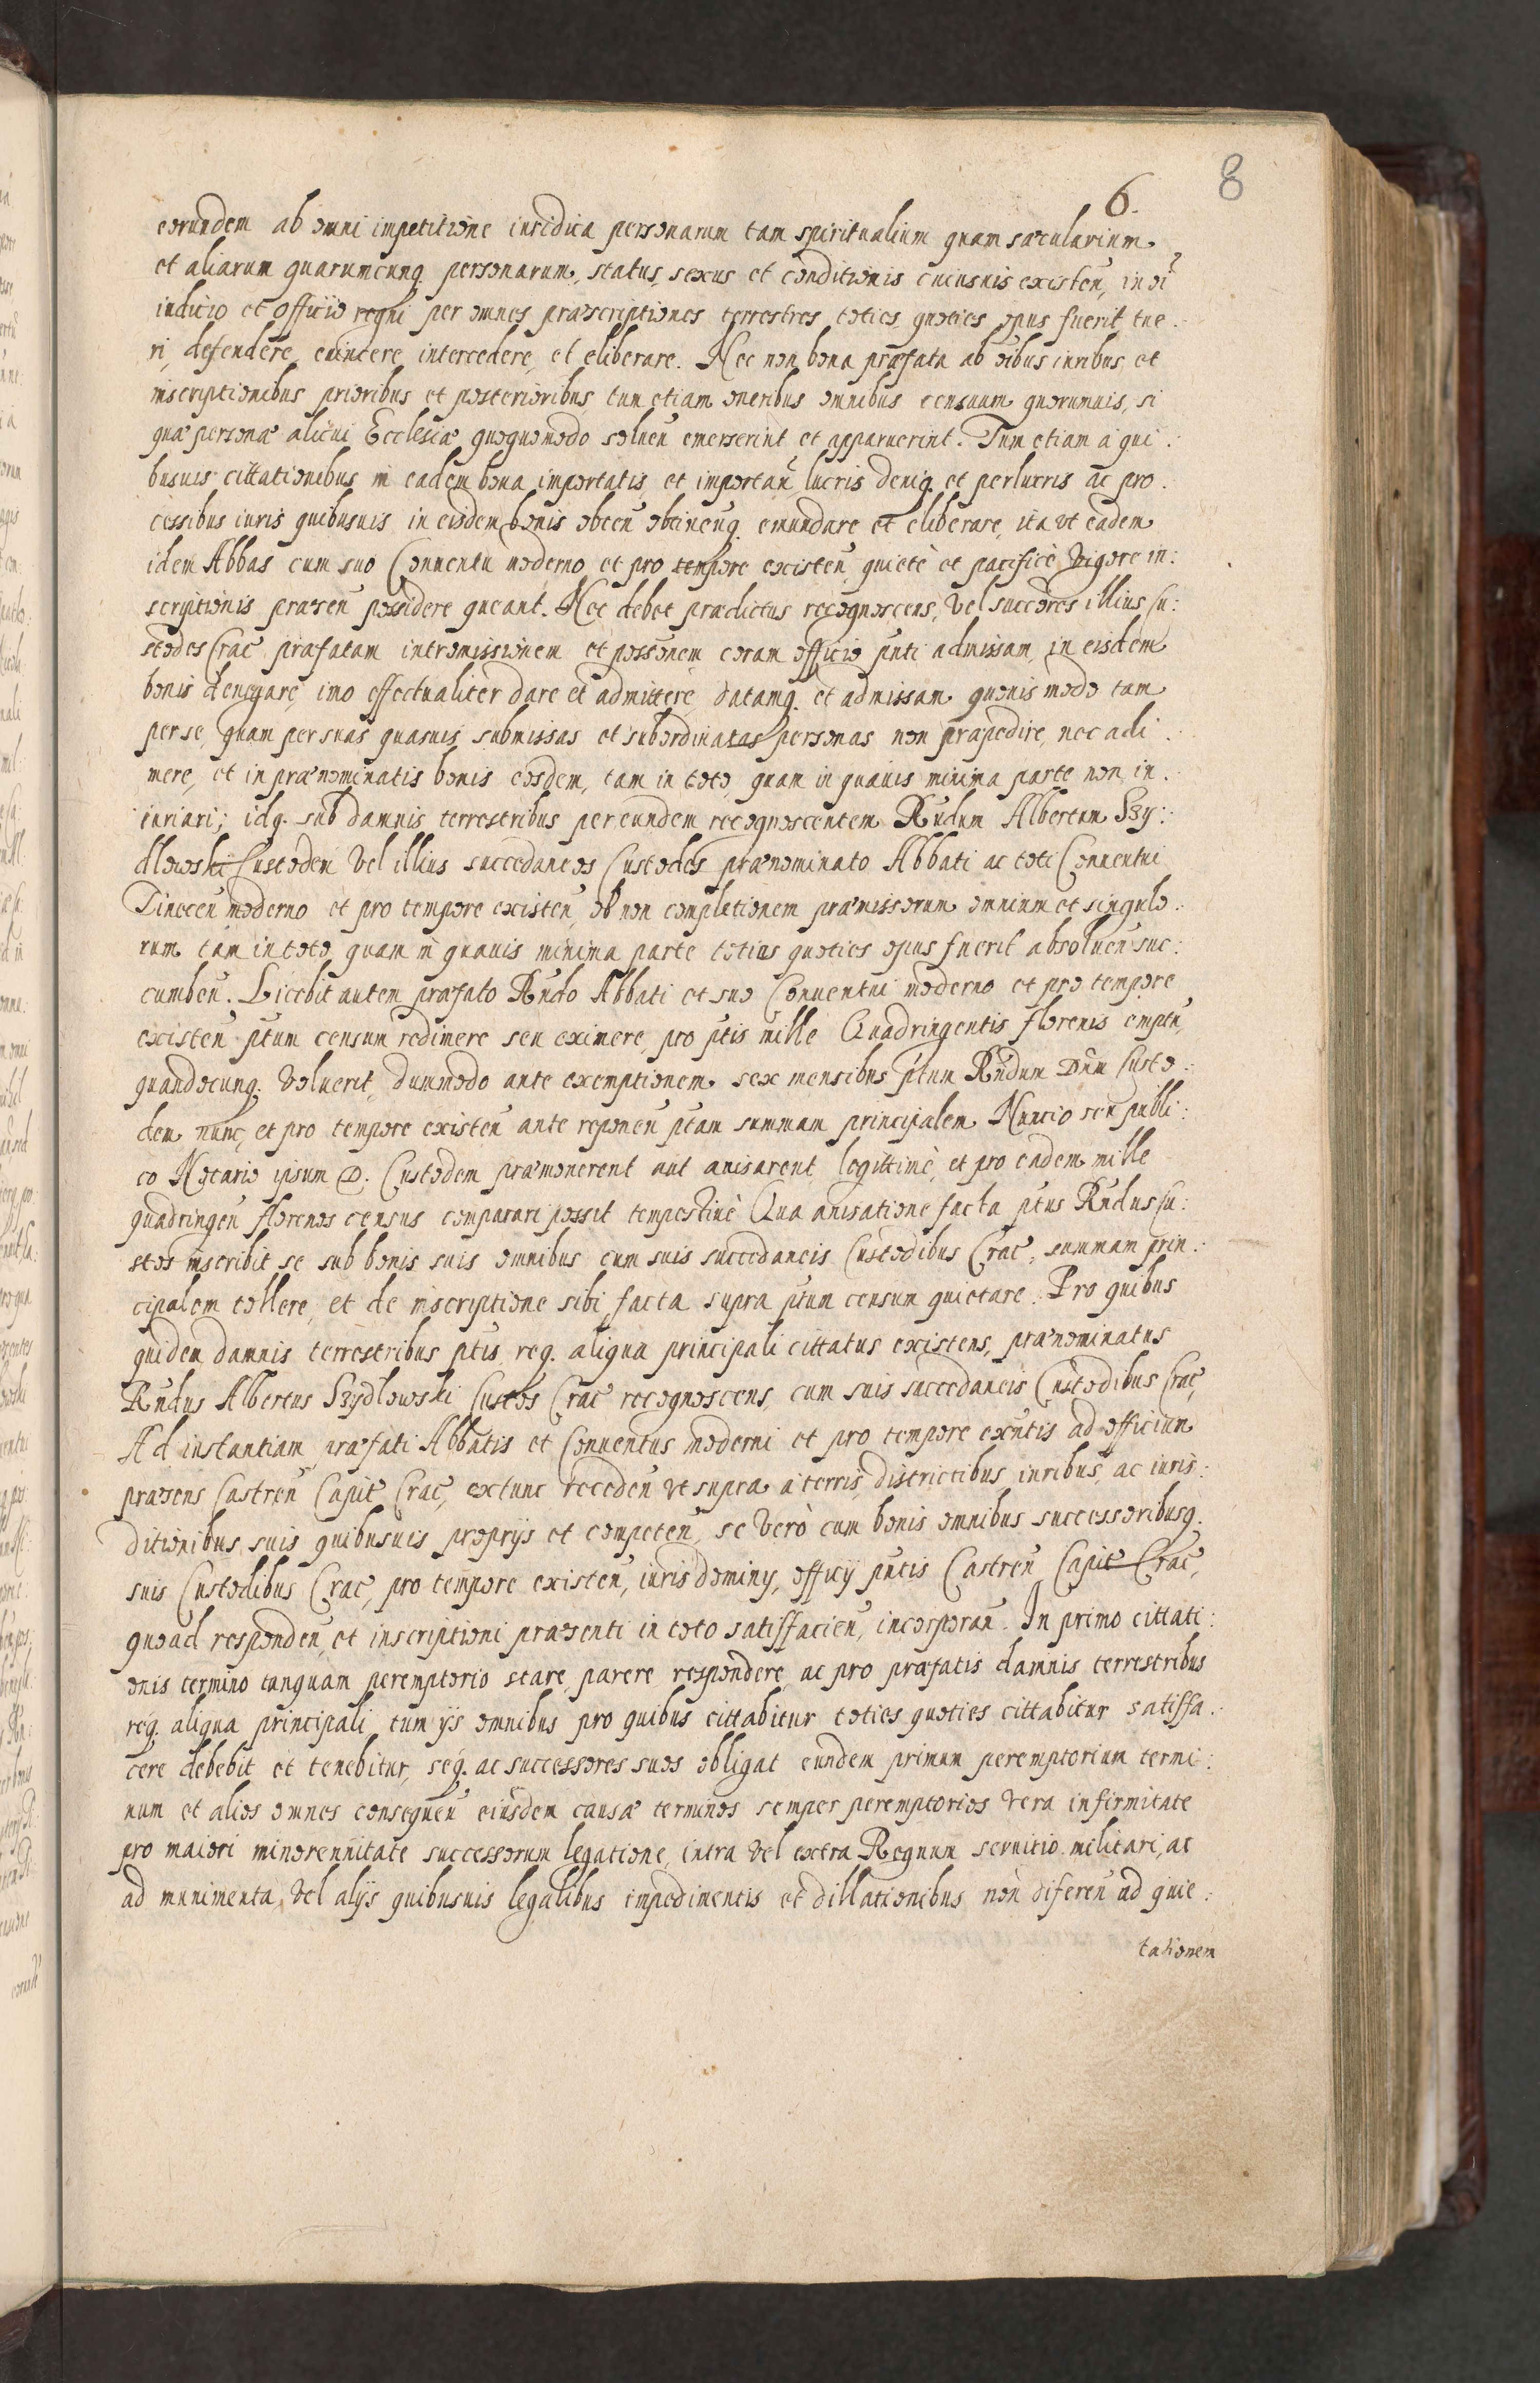 8
6.
eorundem ab omni impetitione iuridica personarum tam spiritualium quam sæcularium
et aliarum quarumcunq. personarum, status, sexus et conditionis cuiusuis existeñ, in oi
iudicio et officio regni per omnes præscriptiones terrestres toties quoties opus fuerit tue.
ri, defendere, euincere, intercedere, et eliberare. Nec non bona præfata ab oibus iuribus et
inscriptionibus prioribus et posterioribus tum etiam oneribus omnibus censuum quorumuis, si
quæ personæ alicui Ecclesiæ quoquomodo solueñ emerserint et apparuerint. Tum etiam à qui:
busuis cittationibus in eadem bona importatis et importañ, lucris deniq. et perlucris ac pro.
cessibus iuris quibusuis in eisdem bonis obteñ obtineñq. emundare et eliberare, ita vt eadem
idem Abbas cum suo Conuentu moderno et pro tempore existeñ, quietè et pacificè vigore in:
scriptionis præseñ possidere queant. Nec debet prædictus recognoscens, vel succeres illius Cu:
stodes Crac̃ præfatam intromissionem et possonem coram officio pñti admissam, in eisdem
bonis denegare, imo effectualiter dare et admittere, datamq. et admissam quouis modo tam
per se, quam per suas quasuis submissas et subordinatas personas non præpedire, nec adi.
mere, et in prænominatis bonis eosdem, tam in toto, quam in quauis minima parte non in.
iuriari; idq. sub damnis terrestribus per eundem recognoscentem Rñdum Albertum Szy:
dlowski Custodem vel illius succedaneos Custodes prænominato Abbati ac toti Conuentui
Tineceñ moderno et pro tempore existeñ, ob non completionem præmissorum omnium et singulo:
rum tam in toto, quam in quauis minima parte totius quoties opus fuerit absolueñ suc:
cumbeñ. Licebit autem præfato Rñdo Abbati et suo Conuentui moderno et pro tempore
existeñ ptum censum redimere seu eximere, pro ptis mille Quadringentis florenis empti,
quandocunq. voluerit, dummodo ante exemptionem sex mensibus ptum Rñdum Dñm Custo:
dem nunc, et pro tempore existeñ ante reponeñ ptam summam principalem Nuncio seu publi:
co Notario ipsum D. Custodem præmonerent aut auisarent legittimè, et pro eadem mille
quadringeñ florenos census comparari possit tempestiuè Qua auisatione facta ptus Rñdus Cu:
stos inscribit se sub bonis suis omnibus cum suis succedaneis Custodibus Crac̃, summam prin:
cipalem tollere, et de inscriptione sibi facta supra ptum censum quietare. Pro quibus
quidem damnis terrestribus ptis req. aliqua principali cittatus existens, prænominatus
Rñdus Albertus Szydlowski Custos Crac̃ recognoscens, cum suis succedaneis Custodibus Crac̃,
Ad instantiam præfati Abbatis et Conuentus moderni et pro tempore exñtis ad officium
præsens Castreñ Capit̃ Crac̃, extunc recedeñ vt supra à terris, districtibus, iuribus, ac iuris:
ditionibus suis quibusuis proprijs et competeñ, se verò cum bonis omnibus successoribusq.
suis Custodibus Crac̃, pro tempore existeñ, iurisdominy, officy pñtis Castreñ Capit̃ Crac̃,
quoad respondeñ, et inscriptioni præsenti in toto satisfacieñ, incorporañ. In primo cittati:
onis termino tanquam peremptorio stare, parere, respondere, ac pro præfatis damnis terrestribus
req. aliqua principali, tum ijs omnibus pro quibus cittabitur toties quoties cittabitur satisfa:
cere debebit et tenebitur, seq. ac successores suos obligat eundem primum peremptorium termi:
num et alios omnes consequeñ eiusdem causæ terminos semper peremptorios vera infirmitate
pro maiori minorennitate successorum legatione, intra vel extra Regnum seruitio militari, ac
ad munimenta, vel alijs quibusuis legalibus impedimentis et dillationibus non difereñ ad quie:
tationem